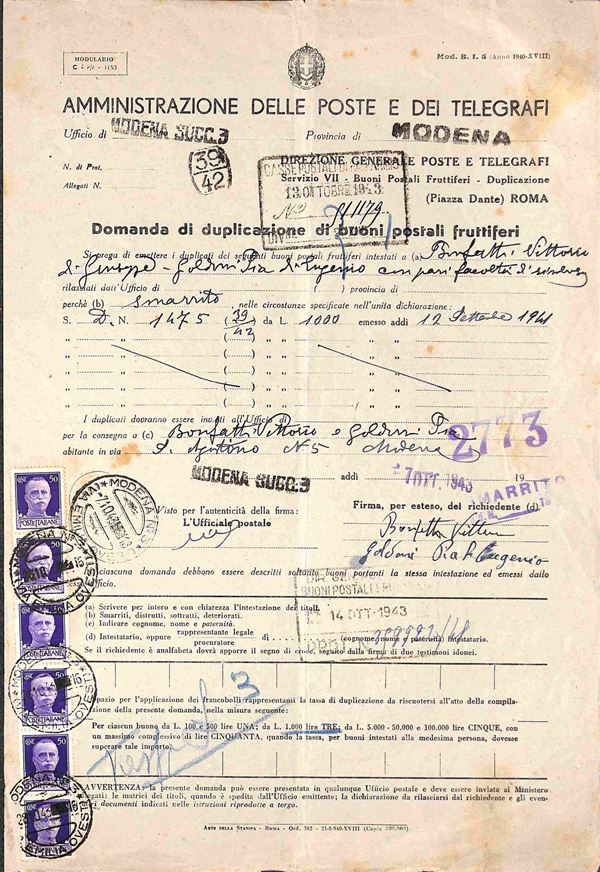 MODULARIO
C - 1153
Mod. B. I. 5 (Anno 1940-XVIII)
AMMINISTRAZIONE DELLE POSTE E DEI TELEGRAFI
Ufficio di MODENA SUCC. 3 Provincia di MODENA
39
42
N. di Prot.
Allegati N.
DIREZIONE GENERALE POSTE E TELEGRAFI
Servizio VII - Buoni Postali Fruttiferi - Duplicazione
(Piazza Dante) ROMA
CASSE POSTALI DI
13 OTTOBRE 1943
No 11179
Domanda di duplicazione di buoni postali fruttiferi
Si prega di emettere i duplicati dei seguenti buoni postali fruttiferi intestati a (a) Bonfatti Vittorio
di Giuseppe - Goldoni Pia di Eugenio con pari facoltà
rilasciati dall'Ufficio di provincia di
perchè (b) smarrito, nelle circostanze specificate nell'unita dichiarazione:
S. D. N. 1475 (39/42) da L. 1000 emesso addì 12 Settembre 1941
„ „ ( ) „ „ „ „
„ „ ( ) „ „ „ „
„ „ ( ) „ „ „ „
„ „ ( ) „ „ „ „
I duplicati dovranno essere inviati all'Ufficio di
per la consegna a (c) Bonfatti Vittorio e Goldoni Pia
2773
abitante in via S. Agostino N 5 Modena
MODENA SUCC. 3 addì 7 OTT. 1943 19
SMARRITO
Visto per l'autenticità della firma:
L'Ufficiale postale
Firma, per esteso, del richiedente (d)
Bonfatti Vittorio
Goldoni Pia di Eugenio
ciascuna domanda debbono essere descritti soltanto buoni portanti la stessa intestazione ed emessi dallo
Ufficio.
BUONI POSTALI
14 OTT. 1943
(a) Scrivere per intero e con chiarezza l'intestazione dei titoli.
(b) Smarriti, distrutti, sottratti, deteriorati.
(c) Indicare cognome, nome e paternità.
(d) Intestatario, oppure rappresentante legale procuratore di (cognome, nome e paternità) intestatario.
Se il richiedente è analfabeta dovrà apporre il segno di croce, seguito dalla firma di due testimoni idonei.
Spazio per l'applicazione dei francobolli rappresentanti la tassa di duplicazione da riscuotersi all'atto della compilazione
della presente domanda, nella misura seguente:
Per ciascun buono da L. 100 e 500 lire UNA; da L. 1.000 lire TRE; da L. 5.000 - 50.000 e 100.000 lire CINQUE, con
un massimo complessivo di lire CINQUANTA, quando la tassa, per buoni intestati alla medesima persona, dovesse
superare tale importo.
3
AVVERTENZA: la presente domanda può essere presentata in qualunque Ufficio postale e deve essere inviata al Ministero
legando: le matrici dei titoli, quando è spedita dall'Ufficio emittente; la dichiarazione da rilasciarsi dal richiedente e gli even-
documenti indicati nelle istruzioni riprodotte a tergo.
ARTE DELLA STAMPA - ROMA - Ord. 362 - 21-8-940-XVIII (Copie 200.000)
CENT 50
POSTE ITALIANE
MODENA N. 3
(VIA EMILIA OVEST)